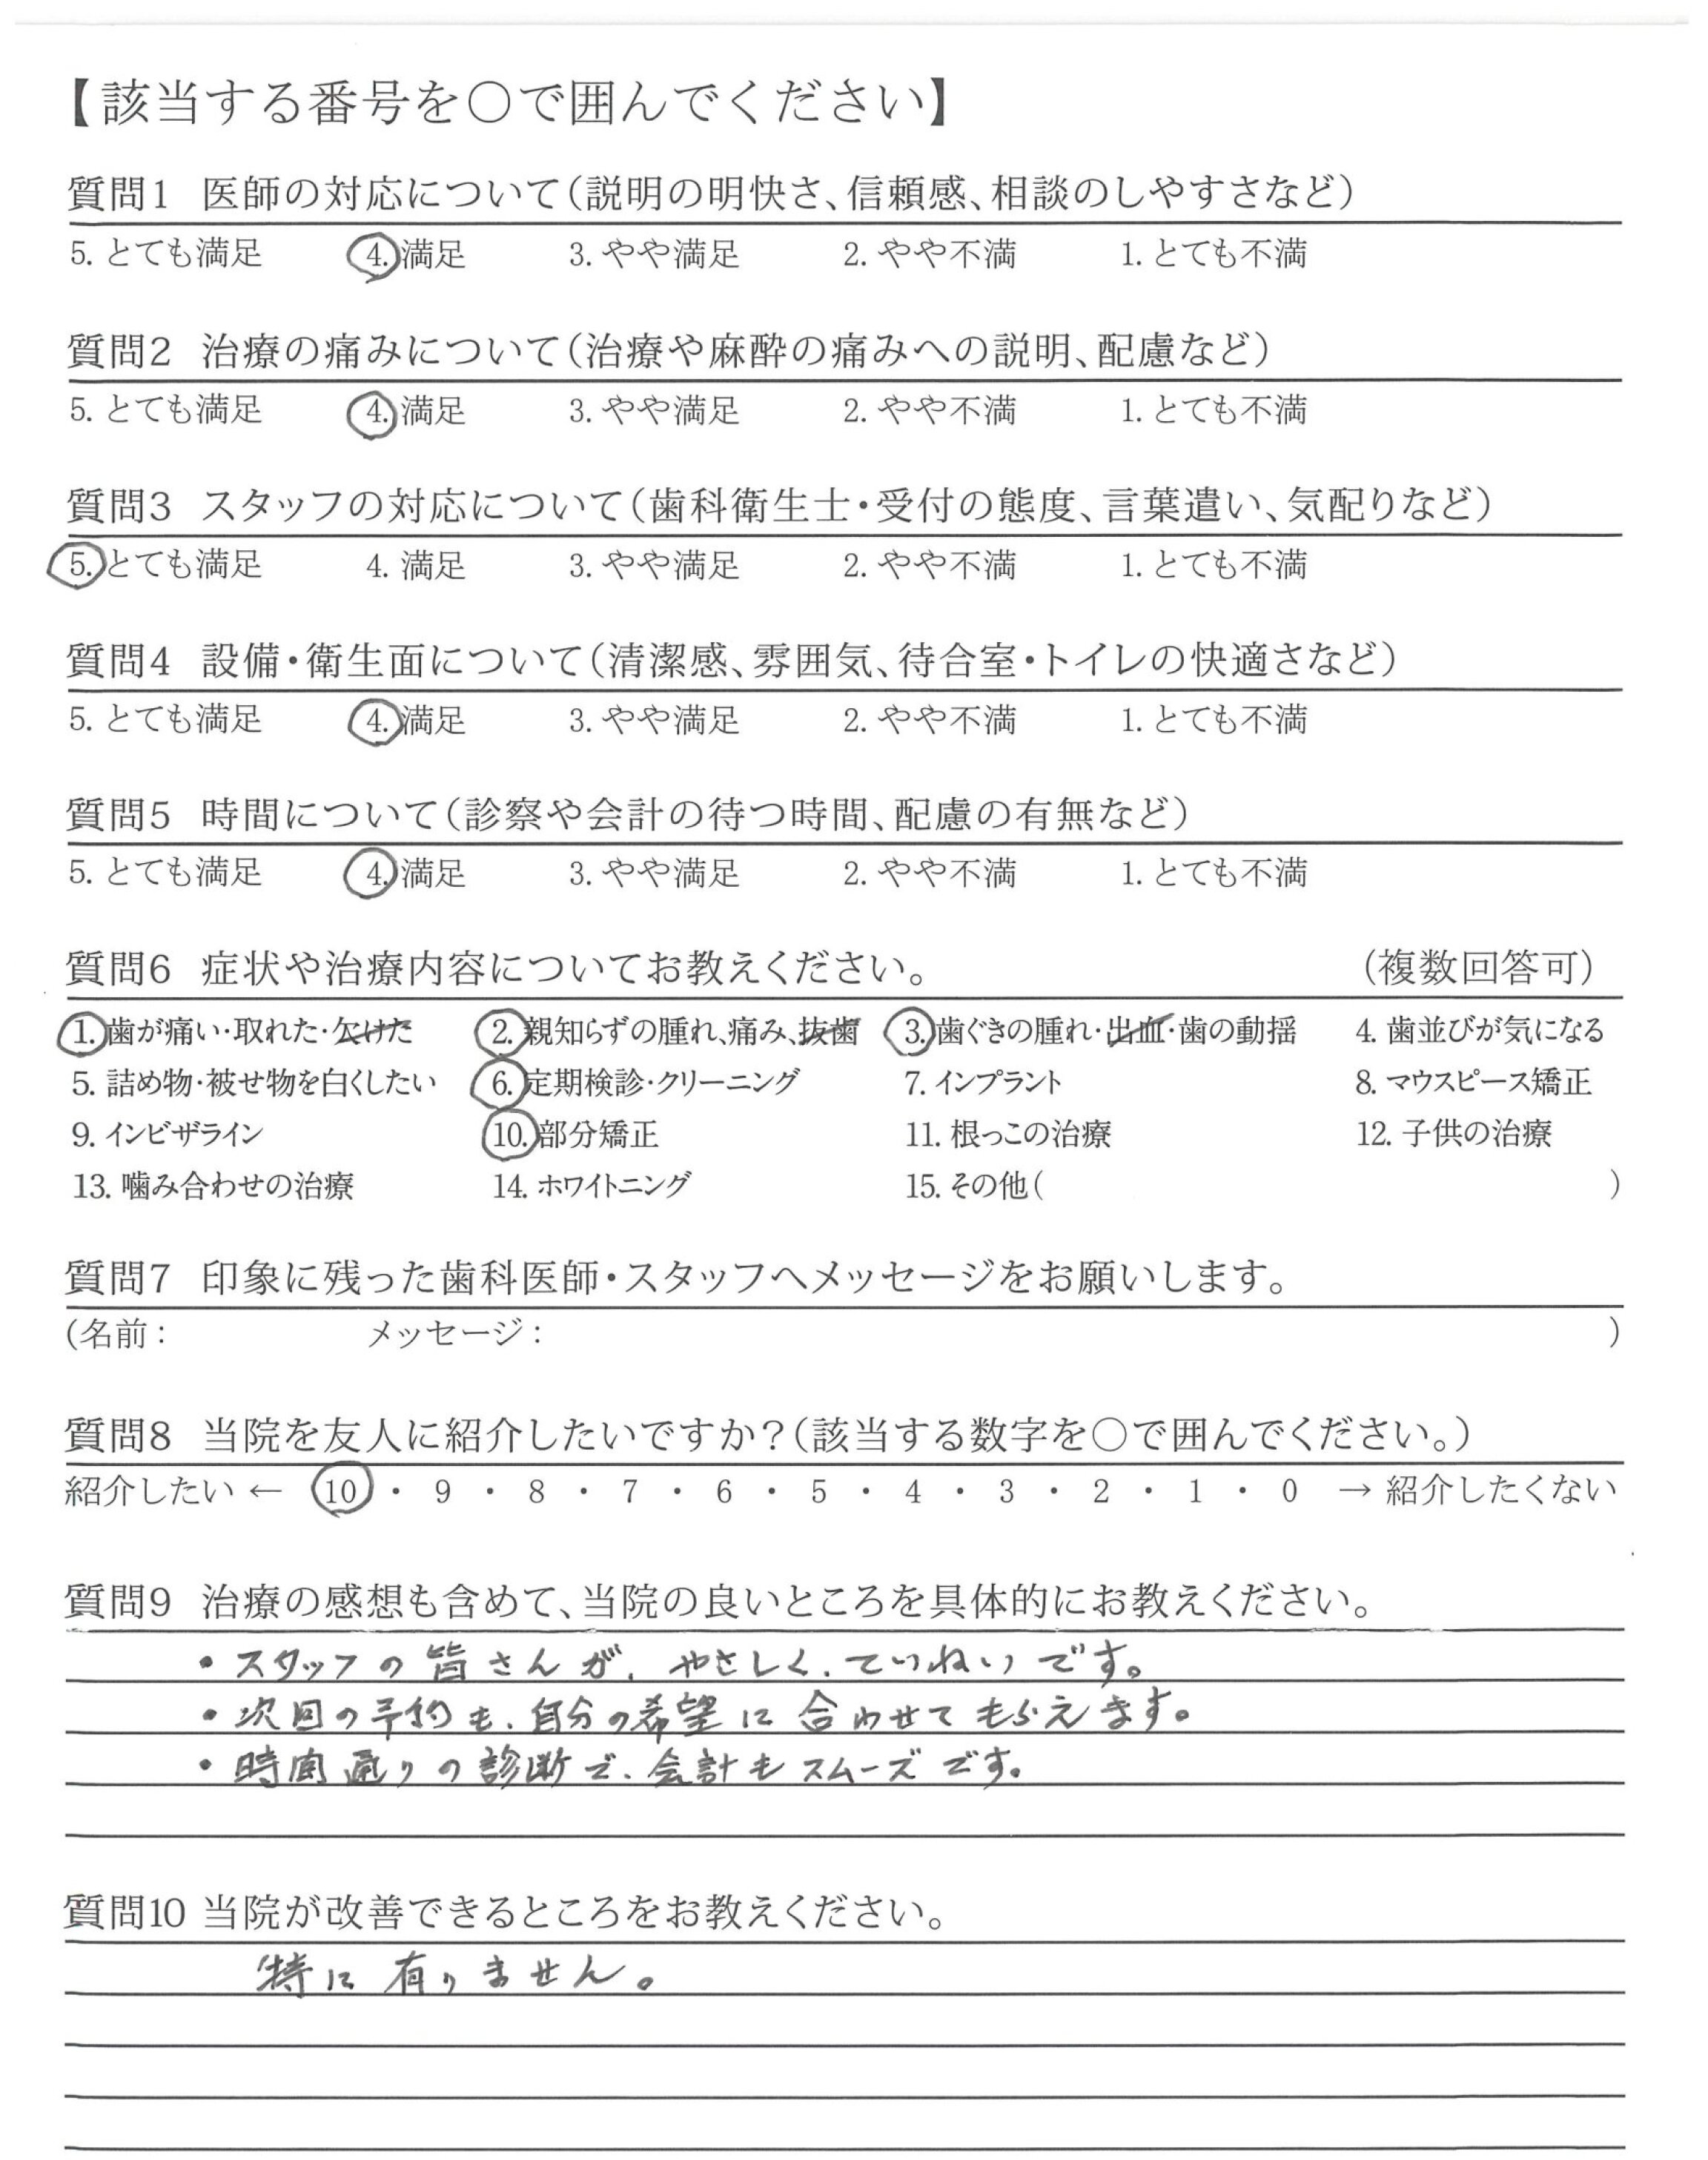 【該当する番号を〇で囲んでください】
質問1 医師の対応について（説明の明快さ、信頼感、相談のしやすさなど）
5. とても満足 4. 満足 3. やや満足 2. やや不満 1. とても不満
質問2 治療の痛みについて（治療や麻酔の痛みへの説明、配慮など）
5. とても満足 4. 満足 3. やや満足 2. やや不満 1. とても不満
質問3 スタッフの対応について（歯科衛生士・受付の態度、言葉遣い、気配りなど）
5. とても満足 4. 満足 3. やや満足 2. やや不満 1. とても不満
質問4 設備・衛生面について（清潔感、雰囲気、待合室・トイレの快適さなど）
5. とても満足 4. 満足 3. やや満足 2. やや不満 1. とても不満
質問5 時間について（診察や会計の待つ時間、配慮の有無など）
5. とても満足 4. 満足 3. やや満足 2. やや不満 1. とても不満
質問6 症状や治療内容についてお教えください。 （複数回答可）
1. 歯が痛い・取れた・欠けた 2. 親知らずの腫れ、痛み、抜歯 3. 歯ぐきの腫れ・出血・歯の動揺 4. 歯並びが気になる
5. 詰め物・被せ物を白くしたい 6. 定期検診・クリーニング 7. インプラント 8. マウスピース矯正
9. インビザライン 10. 部分矯正 11. 根っこの治療 12. 子供の治療
13. 噛み合わせの治療 14. ホワイトニング 15. その他（ ）
質問7 印象に残った歯科医師・スタッフへメッセージをお願いします。
（名前： メッセージ： ）
質問8 当院を友人に紹介したいですか？（該当する数字を〇で囲んでください。）
紹介したい ← 10 ・ 9 ・ 8 ・ 7 ・ 6 ・ 5 ・ 4 ・ 3 ・ 2 ・ 1 ・ 0 → 紹介したくない
質問9 治療の感想も含めて、当院の良いところを具体的にお教えください。
・スタッフの皆さんが、やさしく、ていねいです。
・次回の予約も、自分の希望に合わせてもらえます。
・時間通りの診断で、会計もスムーズです。
質問10 当院が改善できるところをお教えください。
特に有りません。